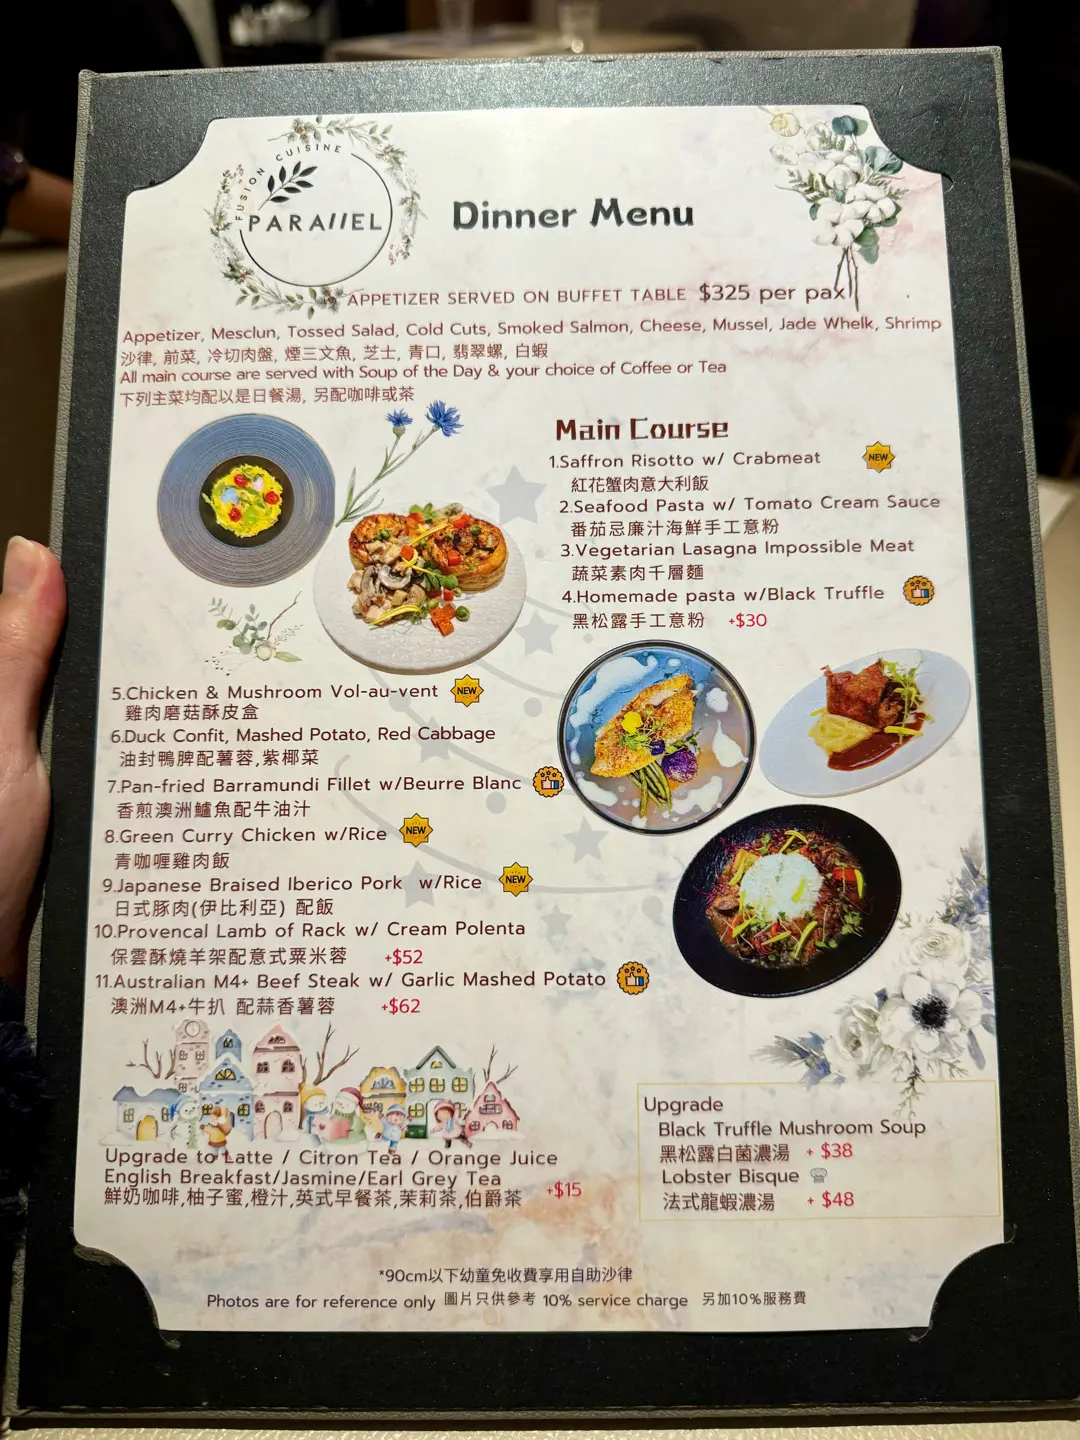 FUSION CUISINE
PARA//EL
Dinner Menu
APPETIZER SERVED ON BUFFET TABLE $325 per pax
Appetizer, Mesclun, Tossed Salad, Cold Cuts, Smoked Salmon, Cheese, Mussel, Jade Whelk, Shrimp
沙律, 前菜, 冷切肉盤, 煙三文魚, 芝士, 青口, 翡翠螺, 白蝦
All main course are served with Soup of the Day & your choice of Coffee or Tea
下列主菜均配以是日餐湯, 另配咖啡或茶
Main Course
1.Saffron Risotto w/ Crabmeat NEW
紅花蟹肉意大利飯
2.Seafood Pasta w/ Tomato Cream Sauce
番茄忌廉汁海鮮手工意粉
3.Vegetarian Lasagna Impossible Meat
蔬菜素肉千層麵
4.Homemade pasta w/Black Truffle
黑松露手工意粉 +$30
5.Chicken & Mushroom Vol-au-vent NEW
雞肉磨菇酥皮盒
6.Duck Confit, Mashed Potato, Red Cabbage
油封鴨脾配薯蓉,紫椰菜
7.Pan-fried Barramundi Fillet w/Beurre Blanc
香煎澳洲鱸魚配牛油汁
8.Green Curry Chicken w/Rice NEW
青咖喱雞肉飯
9.Japanese Braised Iberico Pork w/Rice NEW
日式豚肉(伊比利亞) 配飯
10.Provencal Lamb of Rack w/ Cream Polenta
保雲酥燒羊架配意式粟米蓉 +$52
11.Australian M4+ Beef Steak w/ Garlic Mashed Potato
澳洲M4+牛扒 配蒜香薯蓉 +$62
Upgrade to Latte / Citron Tea / Orange Juice
English Breakfast/Jasmine/Earl Grey Tea
鮮奶咖啡,柚子蜜,橙汁,英式早餐茶,茉莉茶,伯爵茶 +$15
Upgrade
Black Truffle Mushroom Soup
黑松露白菌濃湯 + $38
Lobster Bisque
法式龍蝦濃湯 + $48
*90cm以下幼童免收費享用自助沙律
Photos are for reference only 圖片只供參考 10% service charge 另加10%服務費